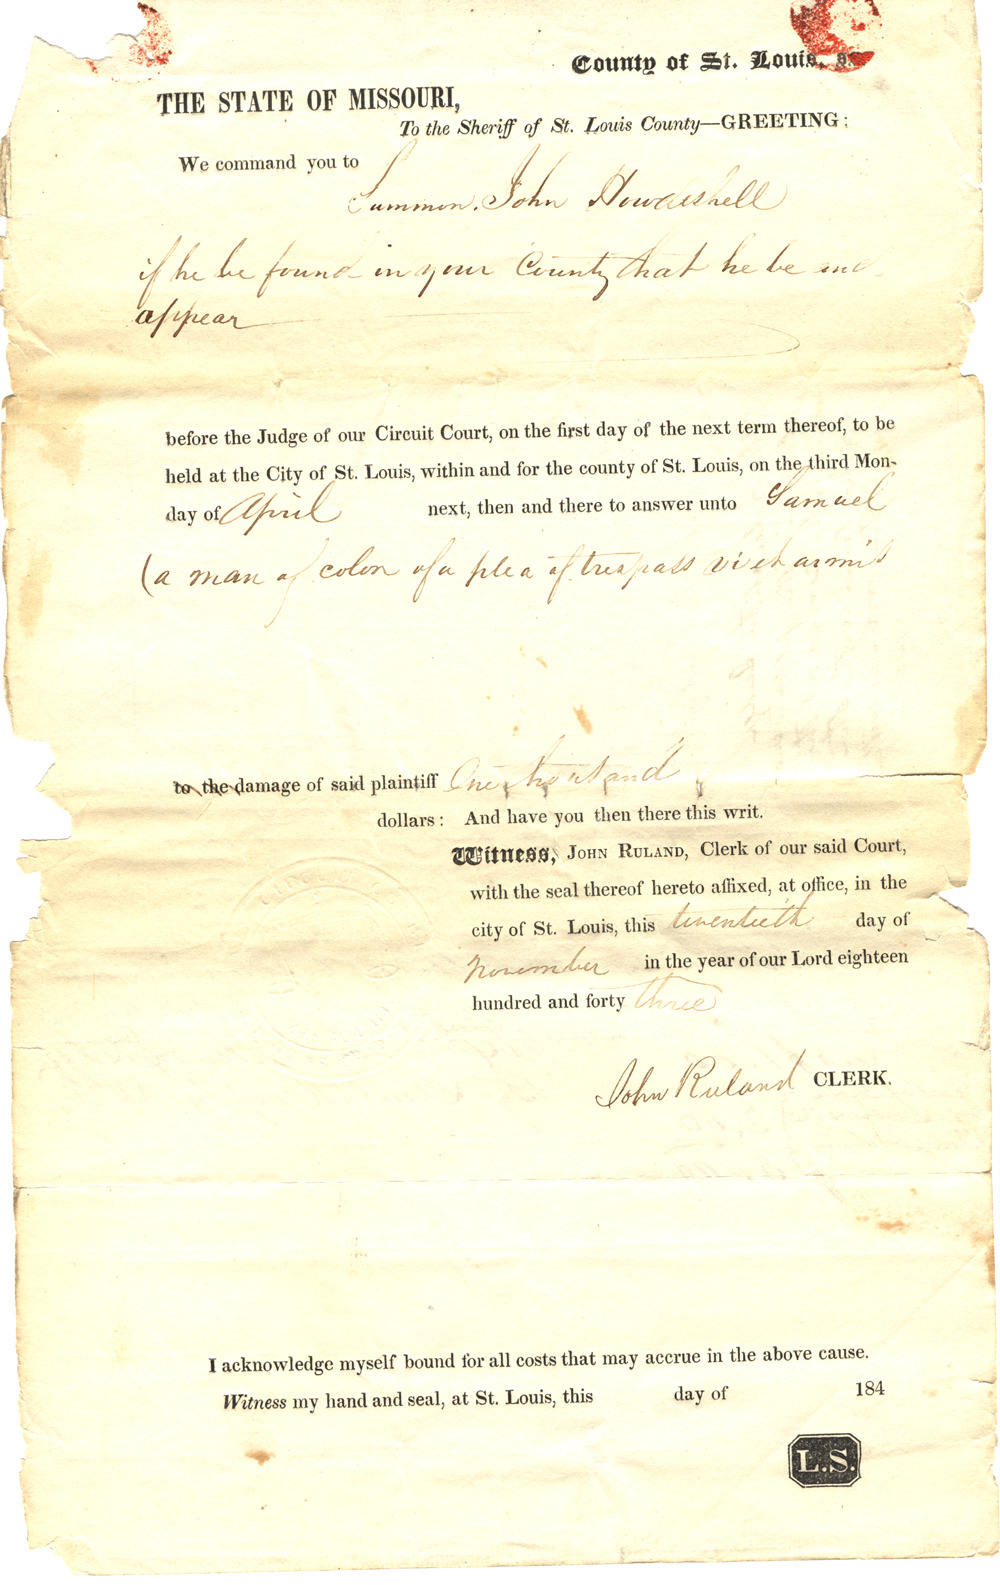 County of St. Louis, ss.
THE STATE OF MISSOURI,
To the Sheriff of St. Louis County—GREETING:
We command you to
Summon. John Howdeshell
if he be found in your County that he be and
appear
before the Judge of our Circuit Court, on the first day of the next term thereof, to be
held at the City of St. Louis, within and for the county of St. Louis, on the third Mon-
day of April next, then and there to answer unto Samuel
(a man of color of a plea of trespass vi et armis
to the damage of said plaintiff One thousand
dollars: And have you then there this writ.
Witness, JOHN RULAND, Clerk of our said Court,
with the seal thereof hereto affixed, at office, in the
city of St. Louis, this twentieth day of
November in the year of our Lord eighteen
hundred and forty three
John Ruland CLERK.
I acknowledge myself bound for all costs that may accrue in the above cause.
Witness my hand and seal, at St. Louis, this day of 184
L.S.